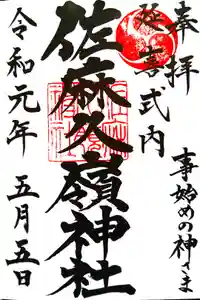 奉拝
延喜式内
事始めの神さま
佐麻久嶺神社
令和元年
五月五日